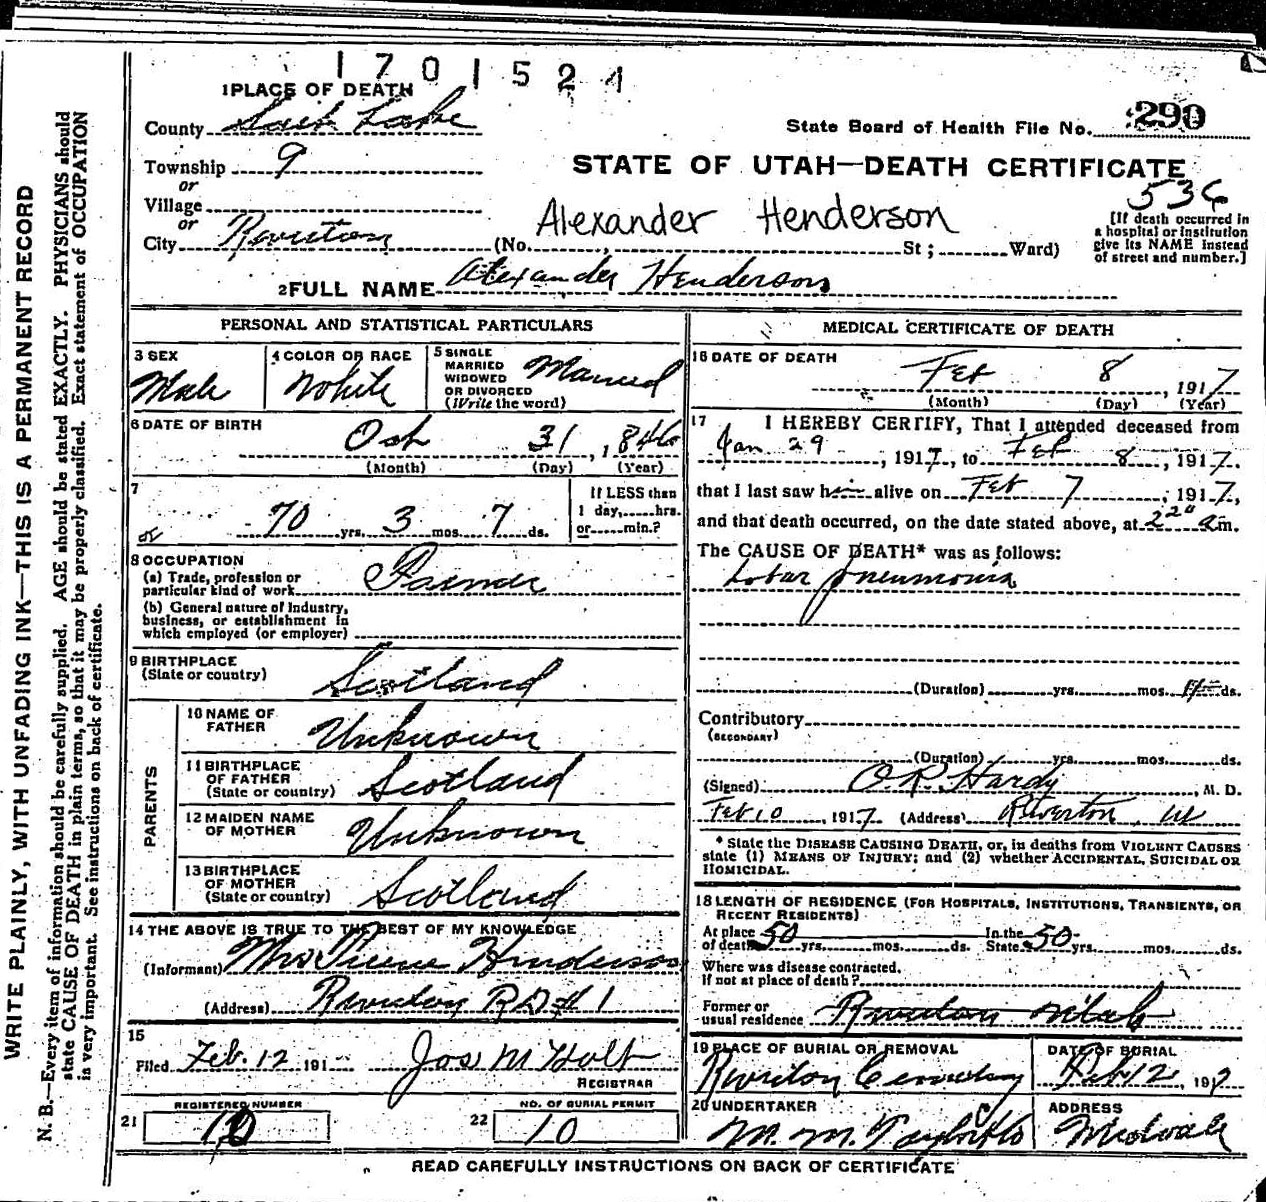 1701524
1 PLACE OF DEATH
County Salt Lake
State Board of Health File No. 290
Township 9
STATE OF UTAH—DEATH CERTIFICATE
or
536
Village
or
Alexander Henderson
[If death occurred in
a hospital or institution
give its NAME instead
of street and number.]
City Riverton (No. , St; Ward)
2 FULL NAME Alexander Henderson
PERSONAL AND STATISTICAL PARTICULARS
3 SEX
Male
4 COLOR OR RACE
White
5 SINGLE
MARRIED
WIDOWED
OR DIVORCED
(Write the word)
Married
6 DATE OF BIRTH
Oct 31, 1846
(Month) (Day) (Year)
7
70 yrs. 3 mos. 7 ds.
If LESS than
1 day, hrs.
or min.?
8 OCCUPATION
(a) Trade, profession or
particular kind of work Farmer
(b) General nature of Industry,
business, or establishment in
which employed (or employer)
9 BIRTHPLACE
(State or country) Scotland
PARENTS
10 NAME OF
FATHER Unknown
11 BIRTHPLACE
OF FATHER
(State or country) Scotland
12 MAIDEN NAME
OF MOTHER Unknown
13 BIRTHPLACE
OF MOTHER
(State or country) Scotland
14 THE ABOVE IS TRUE TO THE BEST OF MY KNOWLEDGE
(Informant) Mrs Henderson
(Address) Riverton R D #1
15
Filed Feb. 12 191 Jos M Holt
REGISTRAR
21 REGISTERED NUMBER
10
22 NO. OF BURIAL PERMIT
10
MEDICAL CERTIFICATE OF DEATH
16 DATE OF DEATH
Feb 8, 1917
(Month) (Day) (Year)
17 I HEREBY CERTIFY, That I attended deceased from
Jan 29, 1917, to Feb 8, 1917.
that I last saw him alive on Feb 7, 1917,
and that death occurred, on the date stated above, at 2 20 a m.
The CAUSE OF DEATH* was as follows:
Lobar pneumonia
(Duration) yrs. mos. ds.
Contributory
(SECONDARY)
(Duration) yrs. mos. ds.
(Signed) O.R. Hardy, M. D.
Feb 10, 1917 (Address) Riverton, Ut
* State the DISEASE CAUSING DEATH, or, in deaths from VIOLENT CAUSES
state (1) MEANS OF INJURY; and (2) whether ACCIDENTAL, SUICIDAL OR
HOMICIDAL.
18 LENGTH OF RESIDENCE (FOR HOSPITALS, INSTITUTIONS, TRANSIENTS, OR
RECENT RESIDENTS)
At place
of death 50 yrs. mos. ds.
In the
State 50 yrs. mos. ds.
Where was disease contracted,
If not at place of death?
Former or
usual residence Riverton Utah
19 PLACE OF BURIAL OR REMOVAL
Riverton Cemetery
DATE OF BURIAL
Feb 12, 1917
20 UNDERTAKER
M. M.
ADDRESS
Midvale
READ CAREFULLY INSTRUCTIONS ON BACK OF CERTIFICATE
WRITE PLAINLY, WITH UNFADING INK—THIS IS A PERMANENT RECORD
N. B.—Every item of information should be carefully supplied. AGE should be stated EXACTLY. PHYSICIANS should
state CAUSE OF DEATH in plain terms, so that it may be properly classified. Exact statement of OCCUPATION
is very important. See instructions on back of certificate.